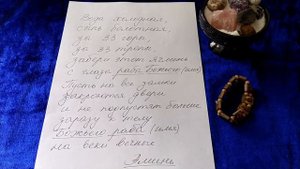 Вода холодная,
сыпь болотная,
за 33 горы,
за 33 тропы.
Забери этот ячмень
с глаза раба Божьего (имя)
Пусть на все замки
закроются двери
и не пропустят больше
заразу к телу
божьего раба (имя)
на веки вечные
Аминь